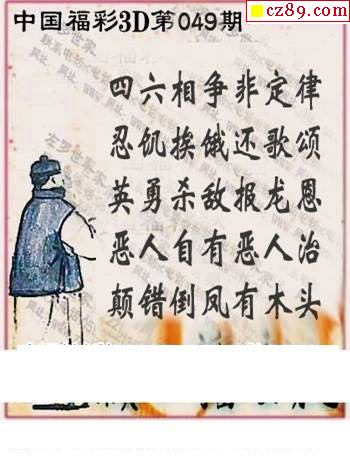 cz89.com
中国福彩3D第049期
四六相争非定律
忍饥挨饿还歌颂
英勇杀敌报龙恩
恶人自有恶人治
颠错倒凤有木头